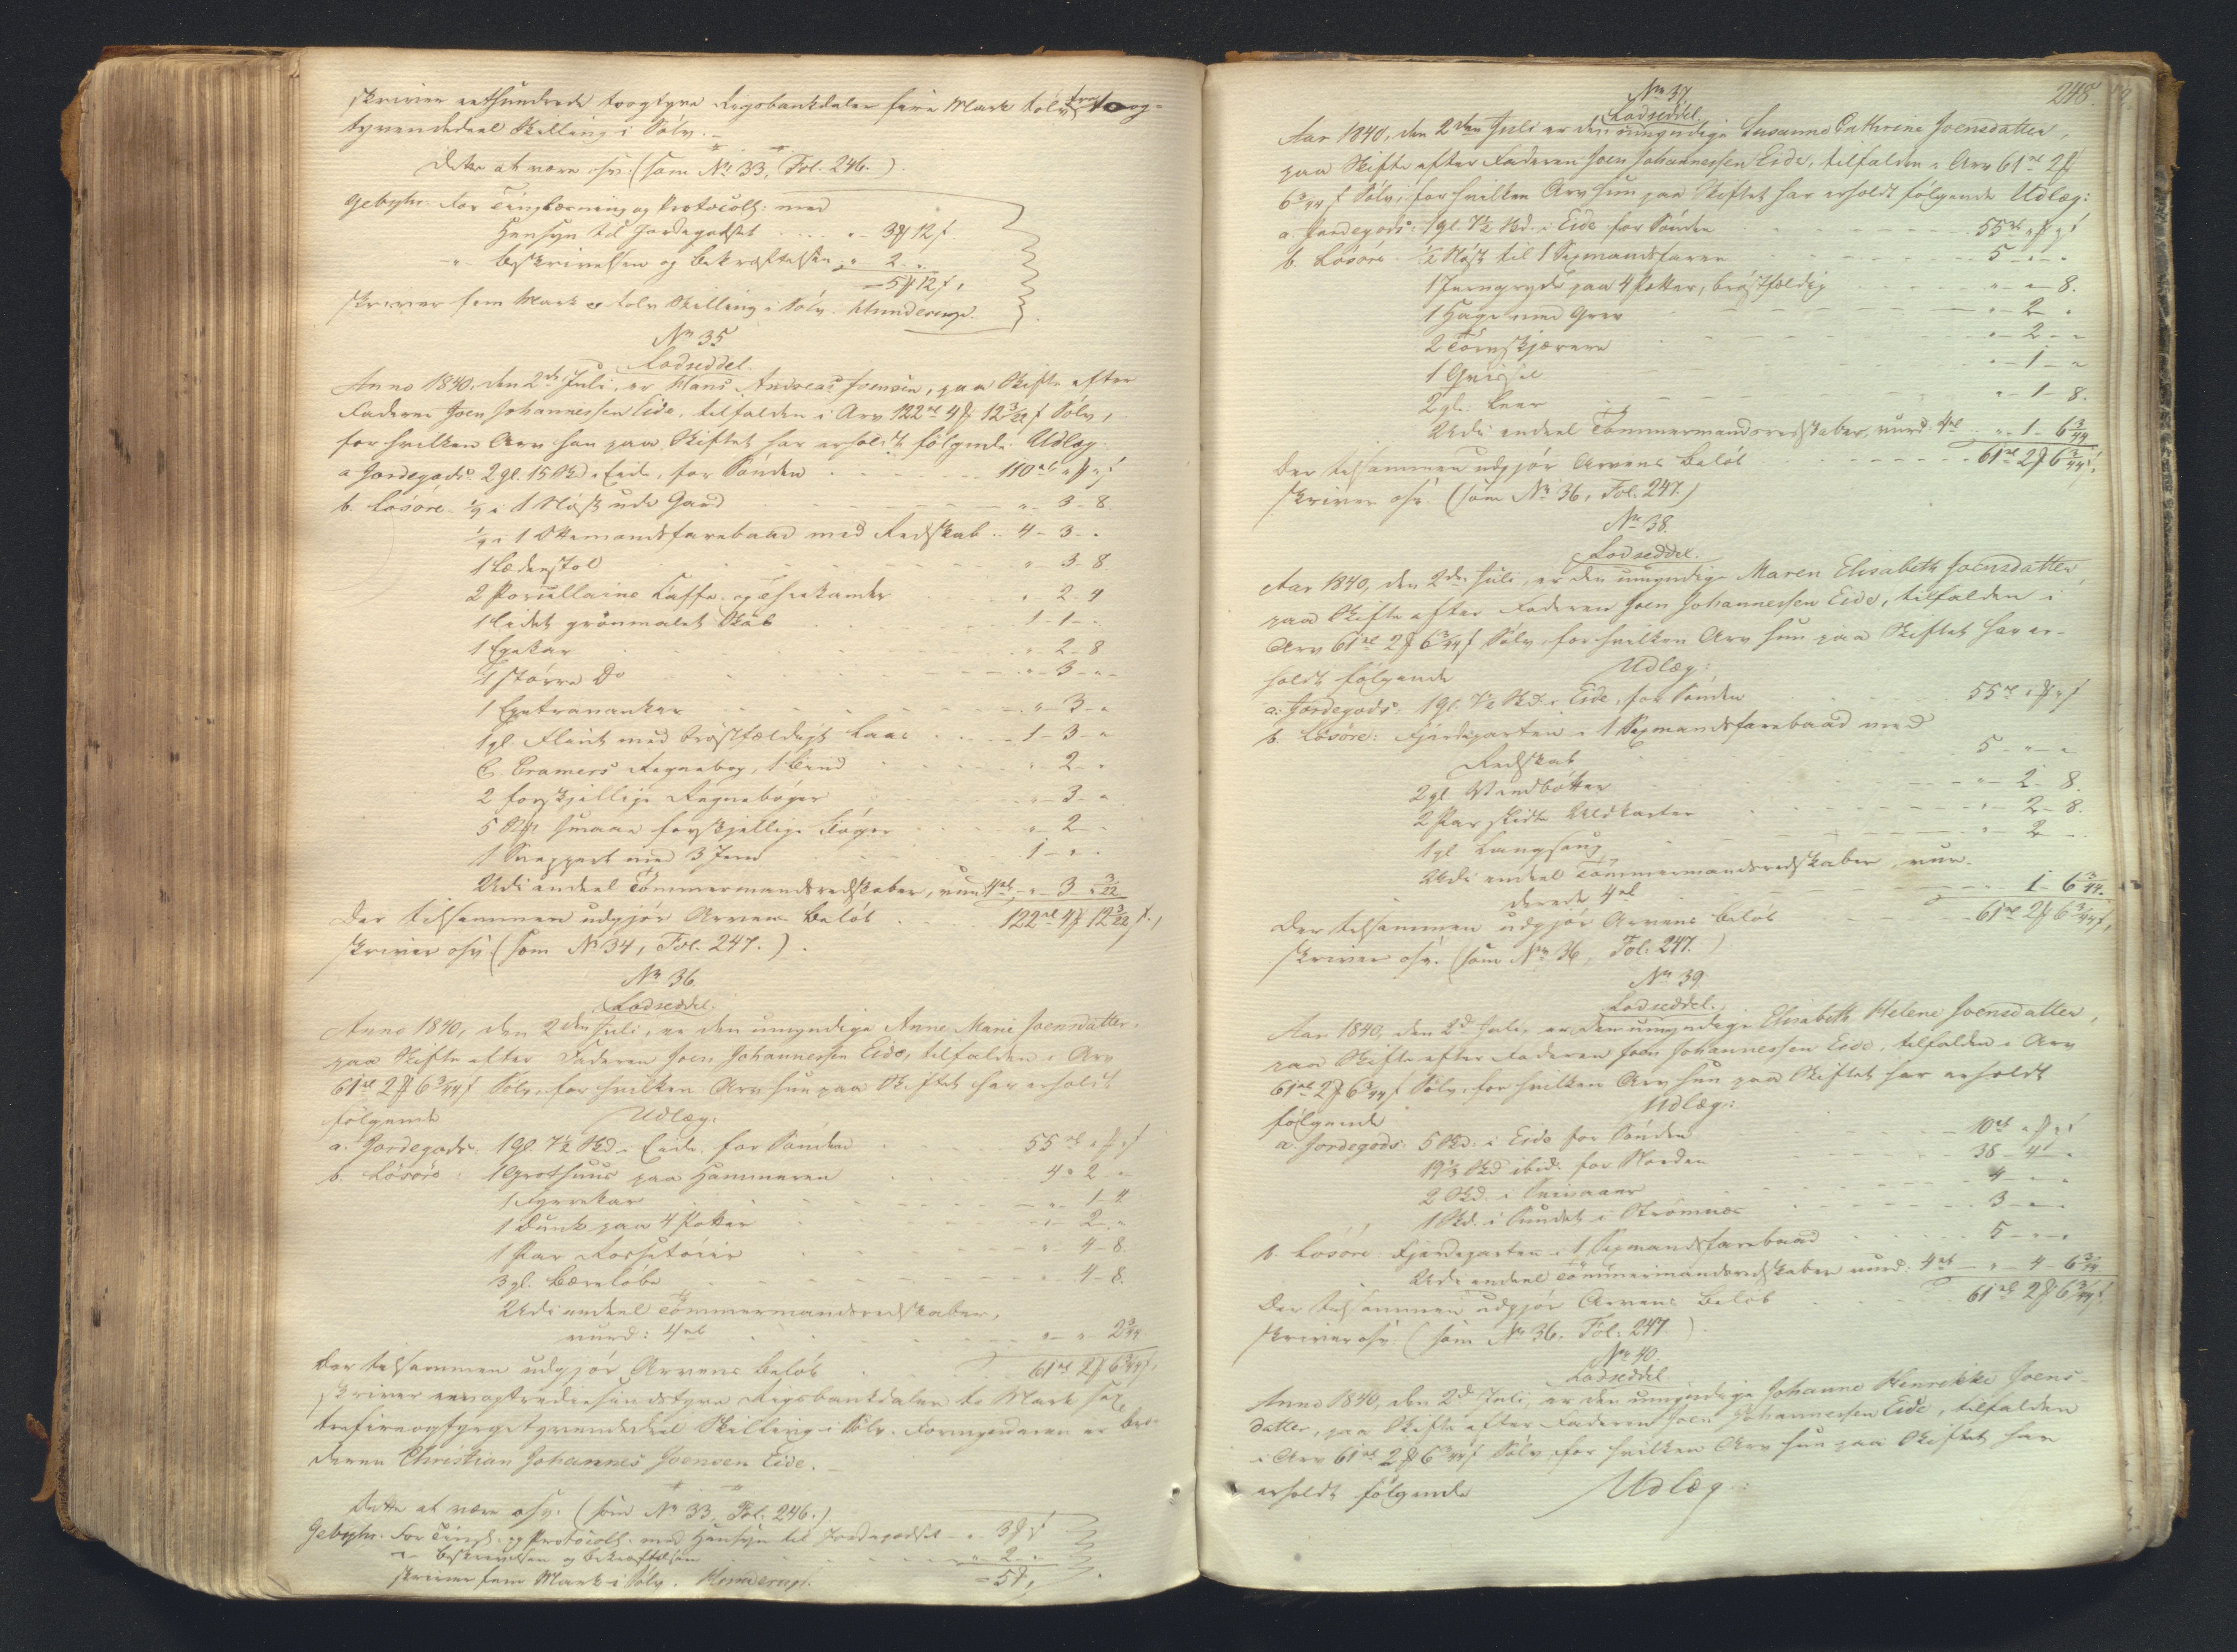 skriver eethundrede toogtyve Rigsbankdaler fire Mark tolv tre toog-
tyvendedeel Skilling i Sölv.
Dette at være osv. (som No 33, Fol. 246.)
Gebyhr. For Tinglæsning og Protocoll: med
Hensyn til Jordegodset 3 12
Beskrivelsen og Bekræftelsen 2
5 12
skriver fem Mark og tolv Skilling i Sölv. Hunderup.
No 35
Lodseddel.
Anno 1840, den 2den Juli, er Hans Andreas Joensen, paa Skifte efter
Faderen Joen Johannessen Eide, tilfalden i Arv 122 4 12 3/22 Sölv,
for hvilken Arv han paa Skiftet har erholdt følgende Udlæg.
a Jordegods. 2 gl. 15 Skd i Eide, for Sönden 110
b. Lösöre. 1/4 i 1 Nöst ude Gard 3 - 8.
1/4 i 1 Ottemandsfarebaad med Redskab 4 - 3 -
1 Læderstol 3 - 8.
2 Porcellaine Kaffe- og Theekander 2 - 4
1 lidet grönmalet Skab 1 - 1 -
1 Egekar 2 - 8
1 större Do 3 -
1 Egetrananker 3 -
1 gl. Flint med bröstfældigt Laas 1 - 3 -
C. Cramers Regnebog, 1 Bind 2 -
2 forskjellige Regnebøger 3 -
5 Stk smaae forskjellige Bøger 2
1 Snappert med 3 Jern 1 -
Udi endeel Tömmermandsredskaber, vurd 4 3 3/22
Der tilsammen udgjör Arvens Belöb 122 4 12 3/22,
skriver osv. (som No 34, Fol. 247.)
No 36
Lodseddel.
Anno 1840, den 2den Juli, er den umyndige Anne Marie Joensdatter,
paa Skifte efter Faderen Joen Johannessen Eide, tilfalden i Arv
61 2 6 3/44 Sölv, for hvilken Arv hun paa Skiftet har erholdt
følgende Udlæg:
a. Jordegods. 1 gl. 7½ Skd i Eide for Sönden 55
b. Lösöre 1 Grothuus paa Hammeren 4 2
1 Fyrrekar 1 - 4
1 Dunk paa 4 Potter 2 -
1 Par 4 - 8.
3 gl. 4 - 8.
Udi endeel Tömmermandsredskaber,
vurd: 4 2 3/44
Der tilsammen udgjör Arvens Belöb 61 2 6 3/44,
skriver eenogtredsindstyve Rigsbankdaler to Mark sex
trefireogfyrgetyvendedeel Skilling i Sölv. Formynderen er bro-
deren Christian Johannes Joensen Eide.
Dette at være osv. (som No 33, Fol. 246.)
Gebyhr. For Tingl. og Protocoll. med Hensyn til Jordegodset 3
Beskrivelsen og Bekræftelsen 2
skriver fem Mark i Sölv. Hunderup. 5
248.
No 37.
Lodseddel.
Aar 1840, den 2den Juli er den umyndige Susanne Cathrine Joensdatter,
paa Skifte efter Faderen Joen Johannessen Eide, tilfalden i Arv 61 2
6 3/44 Sölv, for hvilken Arv hun paa Skiftet har erholdt følgende Udlæg:
a. Jordegods. 1 gl. 7½ Skd. i Eide for Sönden 55
b. Lösöre ½ Nöst til 1 Sexmandsfarer 5 -
1 Jerngryde paa 4 Potter, bröstfældig 8.
1 Hage med Grev 2
2 Törvskjærere 2 -
1 1 -
2 gl. Leer 1 - 8.
Udi endeel Tömmermandsredskaber, vurd. 4 1 - 6 3/44
Der tilsammen udgjör Arvens Belöb 61 2 6 3/44,
skriver osv. (som No 36, Fol. 247.)
No 38.
Lodseddel.
Aar 1840, den 2den Juli, er den umyndige Maren Elisabeth Joensdatter,
paa Skifte efter Faderen Joen Johannessen Eide, tilfalden i
Arv 61 2 6 3/44 Sölv, for hvilken Arv hun paa Skiftet har er-
holdt følgende Udlæg:
a: Jordegods: 1 gl. 7½ Skd. i Eide, for Sönden 55
b. Lösöre: Fjerdeparten i 1 Sexmandsfarebaad med
Redskab 5 -
2 gl. Vandbötter 2 - 8.
2 Par slidte Uldkarter 2 - 8.
1 gl. Langsaug 2 -
Udi endeel Tömmermandsredskaber, vur-
derede 4 1 - 6 3/44.
Der tilsammen udgjör Arvens Belöb 61 2 6 3/44,
skriver osv. (som No 36, Fol. 247.)
No 39
Lodseddel.
Aar 1840, den 2d Juli, er den umyndige Elisabeth Helene Joensdatter,
paa Skifte efter Faderen Joen Johannessen Eide, tilfalden i Arv
61 2 6 3/44 Sölv, for hvilken Arv hun paa Skiftet har erholdt
følgende Udlæg:
a. Jordegods: 5 Skd. i Eide for Sönden 10
19⅓ Skd ibid. for Norden 38 - 4
2 Skd. i 4 -
1 Skd. i Sundet i Strömnæs 3 -
b. Lösöre: Fjerdeparten i 1 Sexmandsfarebaad 5 -
Udi endeel Tömmermandsredskaber vurd. 4 4 - 6 3/44
Der tilsammen udgjör Arvens Belöb 61 2 6 3/44,
skriver osv. (som No 36. Fol: 247.)
No 40.
Lodseddel
Anno 1840, den 2d Juli, er den umyndige Johanne Henrikke Joens-
datter, paa Skifte efter Faderen Joen Johannessen Eide, tilfalden
i Arv 61 2 6 3/44 Sölv, for hvilken Arv hun paa Skiftet har
erholdt følgende Udlæg: